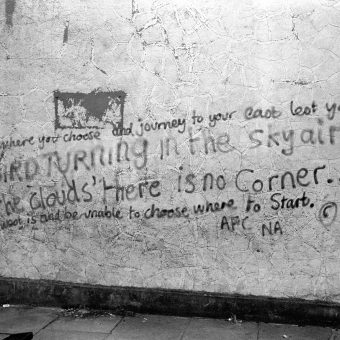 where you choose and journey to your east lest y
BIRD TURNING in the sky air
he clouds' there is no Corner..
west is and be unable to choose where to Start.
©
APC NA